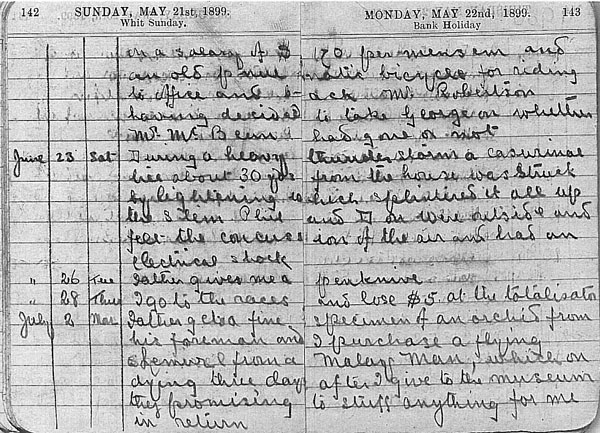 142 SUNDAY, MAY 21st, 1899. MONDAY, MAY 22nd, 1899. 143
Whit Sunday. Bank Holiday
on a salary of $ per mensem and
an old pneumatic bicycle for riding
to office and b-ack Mr Robertson
having decided to take George on whether
Mr McBean had gone or not
June 23 Sat During a heavy thunder storm a casurinal
tree about 30 yds from the house was struck
by lightening which splintered it all up
the stem Phil and I were outside and
felt the concussion of the air and had an
electrical shock
" 26 Tue Father gives me a penknive
" 28 Thu I go to the races and lose $5 at the totalisator
July 2 Mon Father gets a fine specimen of an orchid from
his foreman and I purchase a flying
from a Malay Man, which on
dying three days after I give to the museum
they promising to stuff anything for me
in return